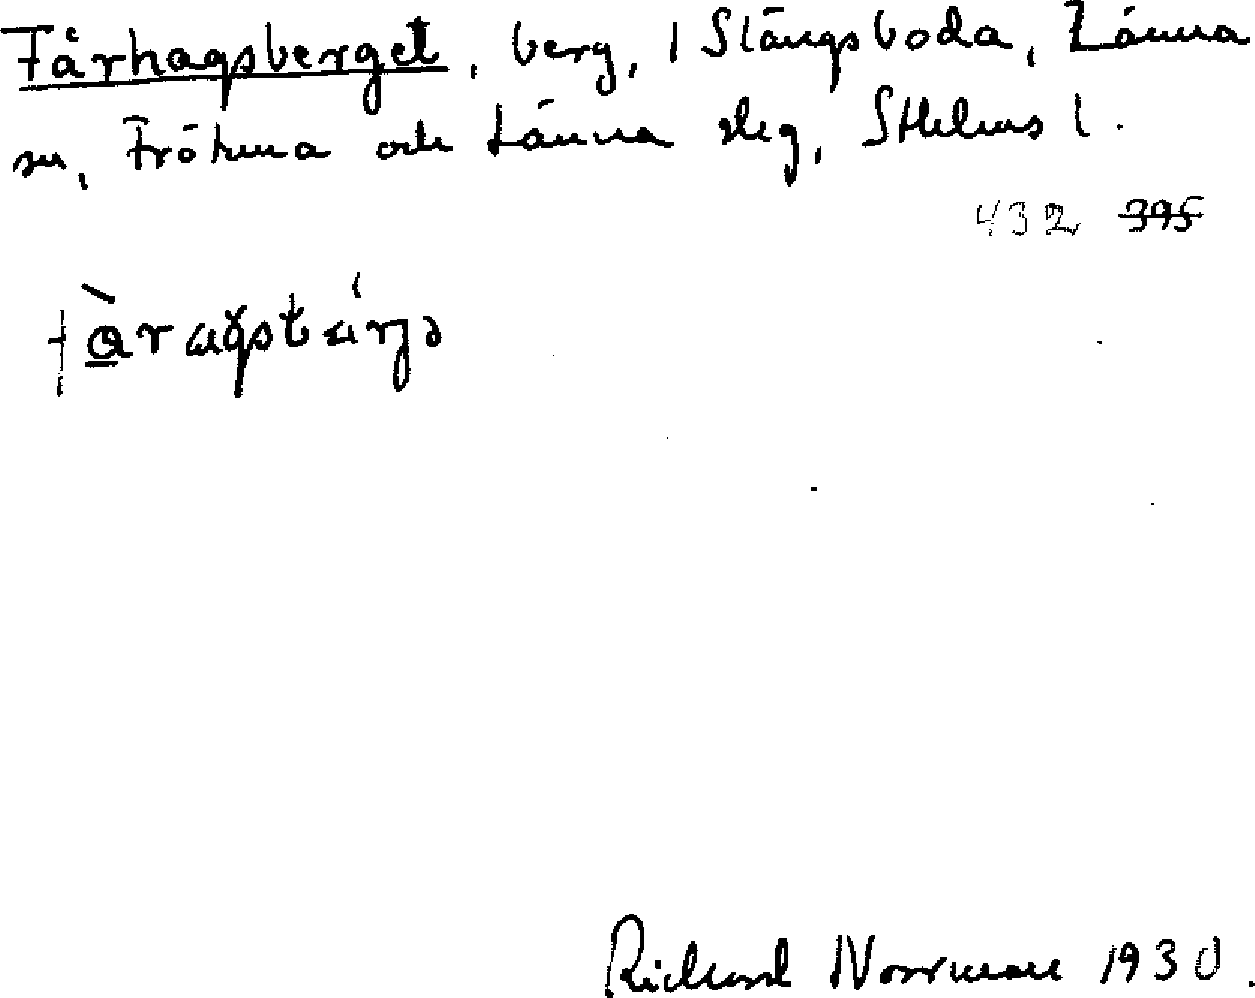 Fårhagsberget, berg, i Stängsboda, Länna
sn, Frötuna och Länna slg, Sthlms l.
432 395
Richard Norrman 1930.